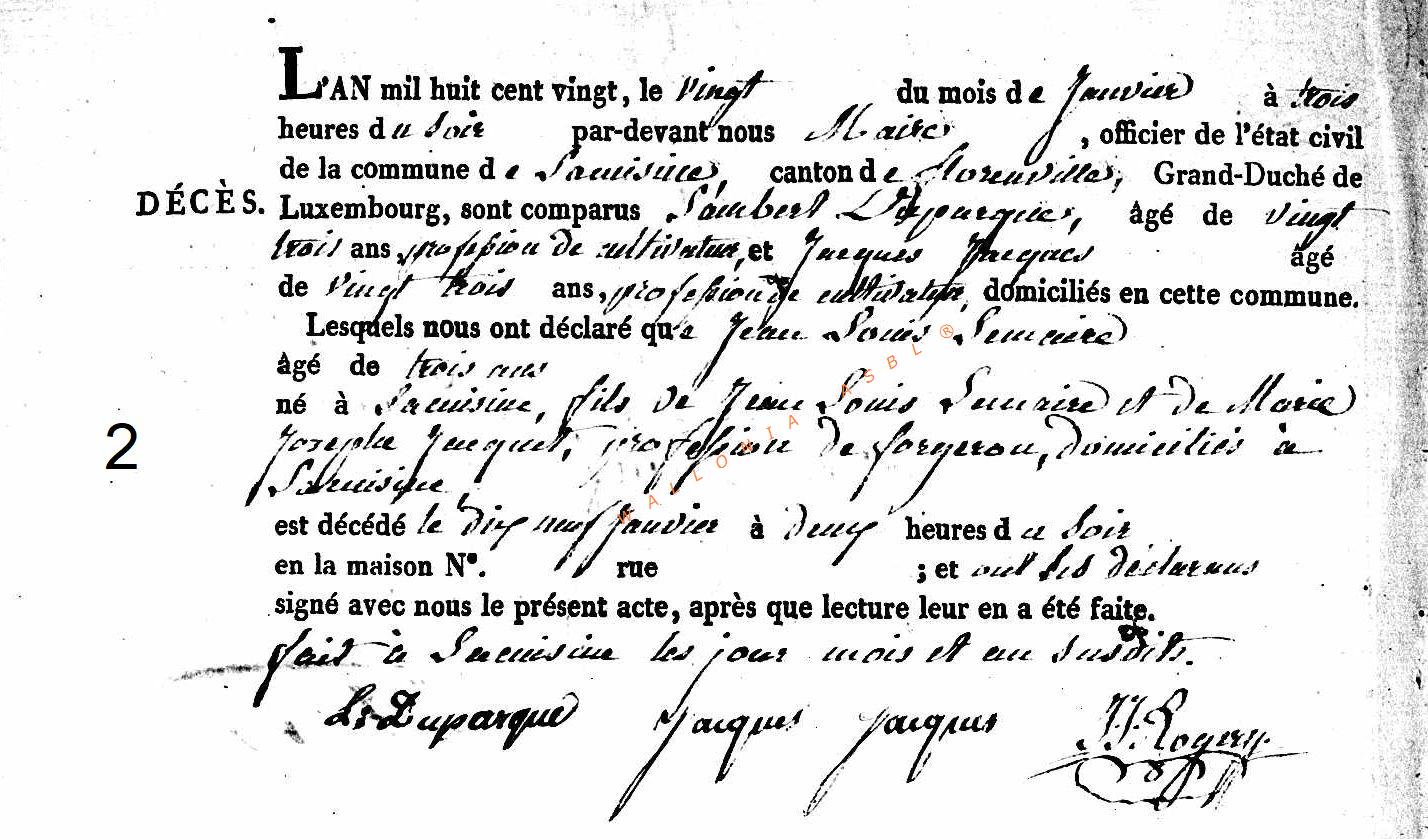 L'AN mil huit cent vingt, le vingt du mois de Janvier à trois
heures du soir par-devant nous Maire, officier de l'état civil
de la commune de Lacuisine, canton de florenville, Grand-Duché de
DÉCÈS. Luxembourg, sont comparus Lambert Duparque, âgé de vingt
trois ans, profession de cultivateur, et Jacques Jacques âgé
de vingt trois ans, profession de cultivateur, domiciliés en cette commune.
Lesquels nous ont déclaré que Jean Louis Lemaire
âgé de trois ans
né à Lacuisine, fils de Jean Louis Lemaire et de Marie
2 Josephe Jacquet, profession de forgeron, domiciliés à
Lacuisine
est décédé le dix neuf Janvier à deux heures du soir
en la maison N°. rue ; et ont les déclarans
signé avec nous le présent acte, après que lecture leur en a été faite.
fait à Lacuisine les jour mois et an susdits.
Duparque Jacques Jacques J. J. Rogery
WALLONIA ASBL ®